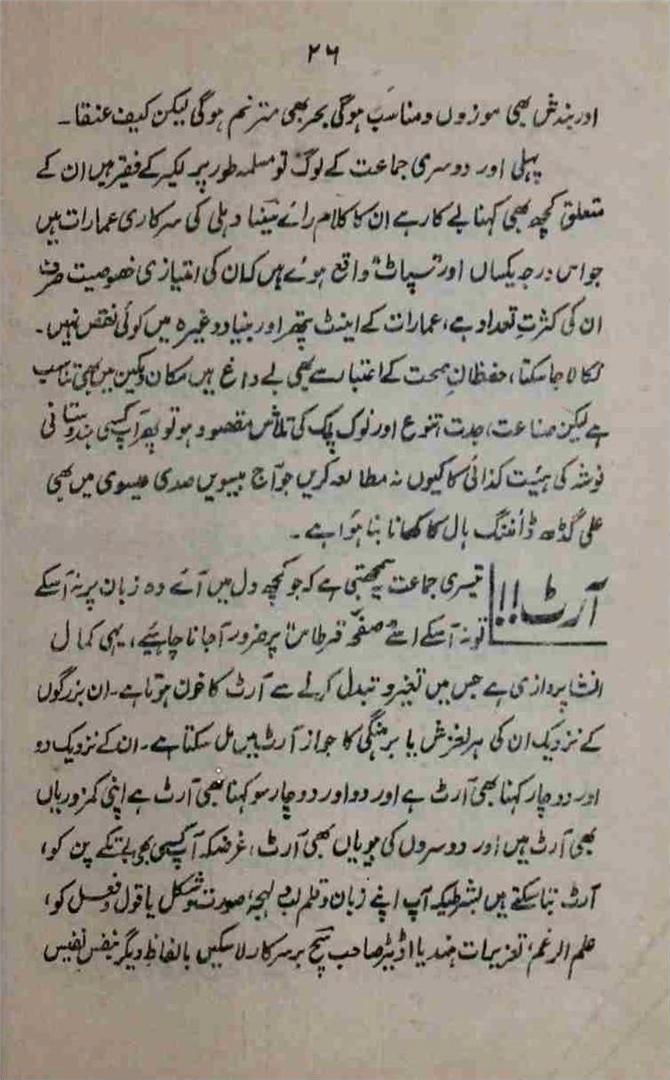 ۲۶
اور بندش بھی موزوں و مناسب ہوگی بحر بھی مترنم ہوگی لیکن کیف عنقا۔
پہلی اور دوسری جماعت کے لوگ تو مسلمہ طور پر لکیر کے فقیر ہیں ان کے
متعلق کچھ بھی کہنا بے کار ہے ان کا کلام رائے سینا دہلی کی سرکاری عمارات ہیں
جو اس درجہ یکساں اور "سپاٹ" واقع ہوئے ہیں کہ ان کی امتیازی خصوصیت صرف
ان کی کثرتِ تعداد ہے، عمارات کے اینٹ پتھر اور بنیاد وغیرہ میں کوئی نقص نہیں۔
نکالا جاسکتا، حفظانِ صحت کے اعتبار سے بھی بے داغ ہیں مکان و مکین میں بھی تناسب
ہے لیکن صناعت، جدت تنوع اور نوک پلک کی تلاش مقصود ہو تو پھر آپ کسی ہندوستانی
نوشہ کی ہیئت کذائی کا کیوں نہ مطالعہ کریں جو آج بیسویں صدی عیسوی میں بھی
علی گڈھ ڈائننگ ہال کا کھانا بنا ہوا ہے۔
آرٹ!! تیسری جماعت یہ سمجھتی ہے کہ جو کچھ دل میں آئے وہ زبان پر نہ آسکے
تو نہ آسکے اسے صفحۂ قرطاس پر ضرور آجانا چاہئیے، یہی کمال
انشا پردازی ہے جس میں تغیر و تبدل کرنے سے آرٹ کا خون ہوتا ہے۔ ان بزرگوں
کے نزدیک ان کی ہر لغزش یا برہنگی کا جواز آرٹ میں مل سکتا ہے۔ ان کے نزدیک دو
اور دو چار کہنا بھی آرٹ ہے اور دو اور دو چار سو کہنا بھی آرٹ ہے اپنی کمزوریاں
بھی آرٹ ہیں اور دوسروں کی بیویاں بھی آرٹ، غرضکہ آپ کسی بھی بے تکے پن کو،
آرٹ بنا سکتے ہیں بشرطیکہ آپ اپنے زبان و قلم لب و لہجہ، صورت و شکل یا قول و فعل کو،
علم الرغم، تعزیرات ہند یا اڈیٹر صاحب سچ برسرکار لاسکیں بالفاظِ دیگر بنفس نفیس